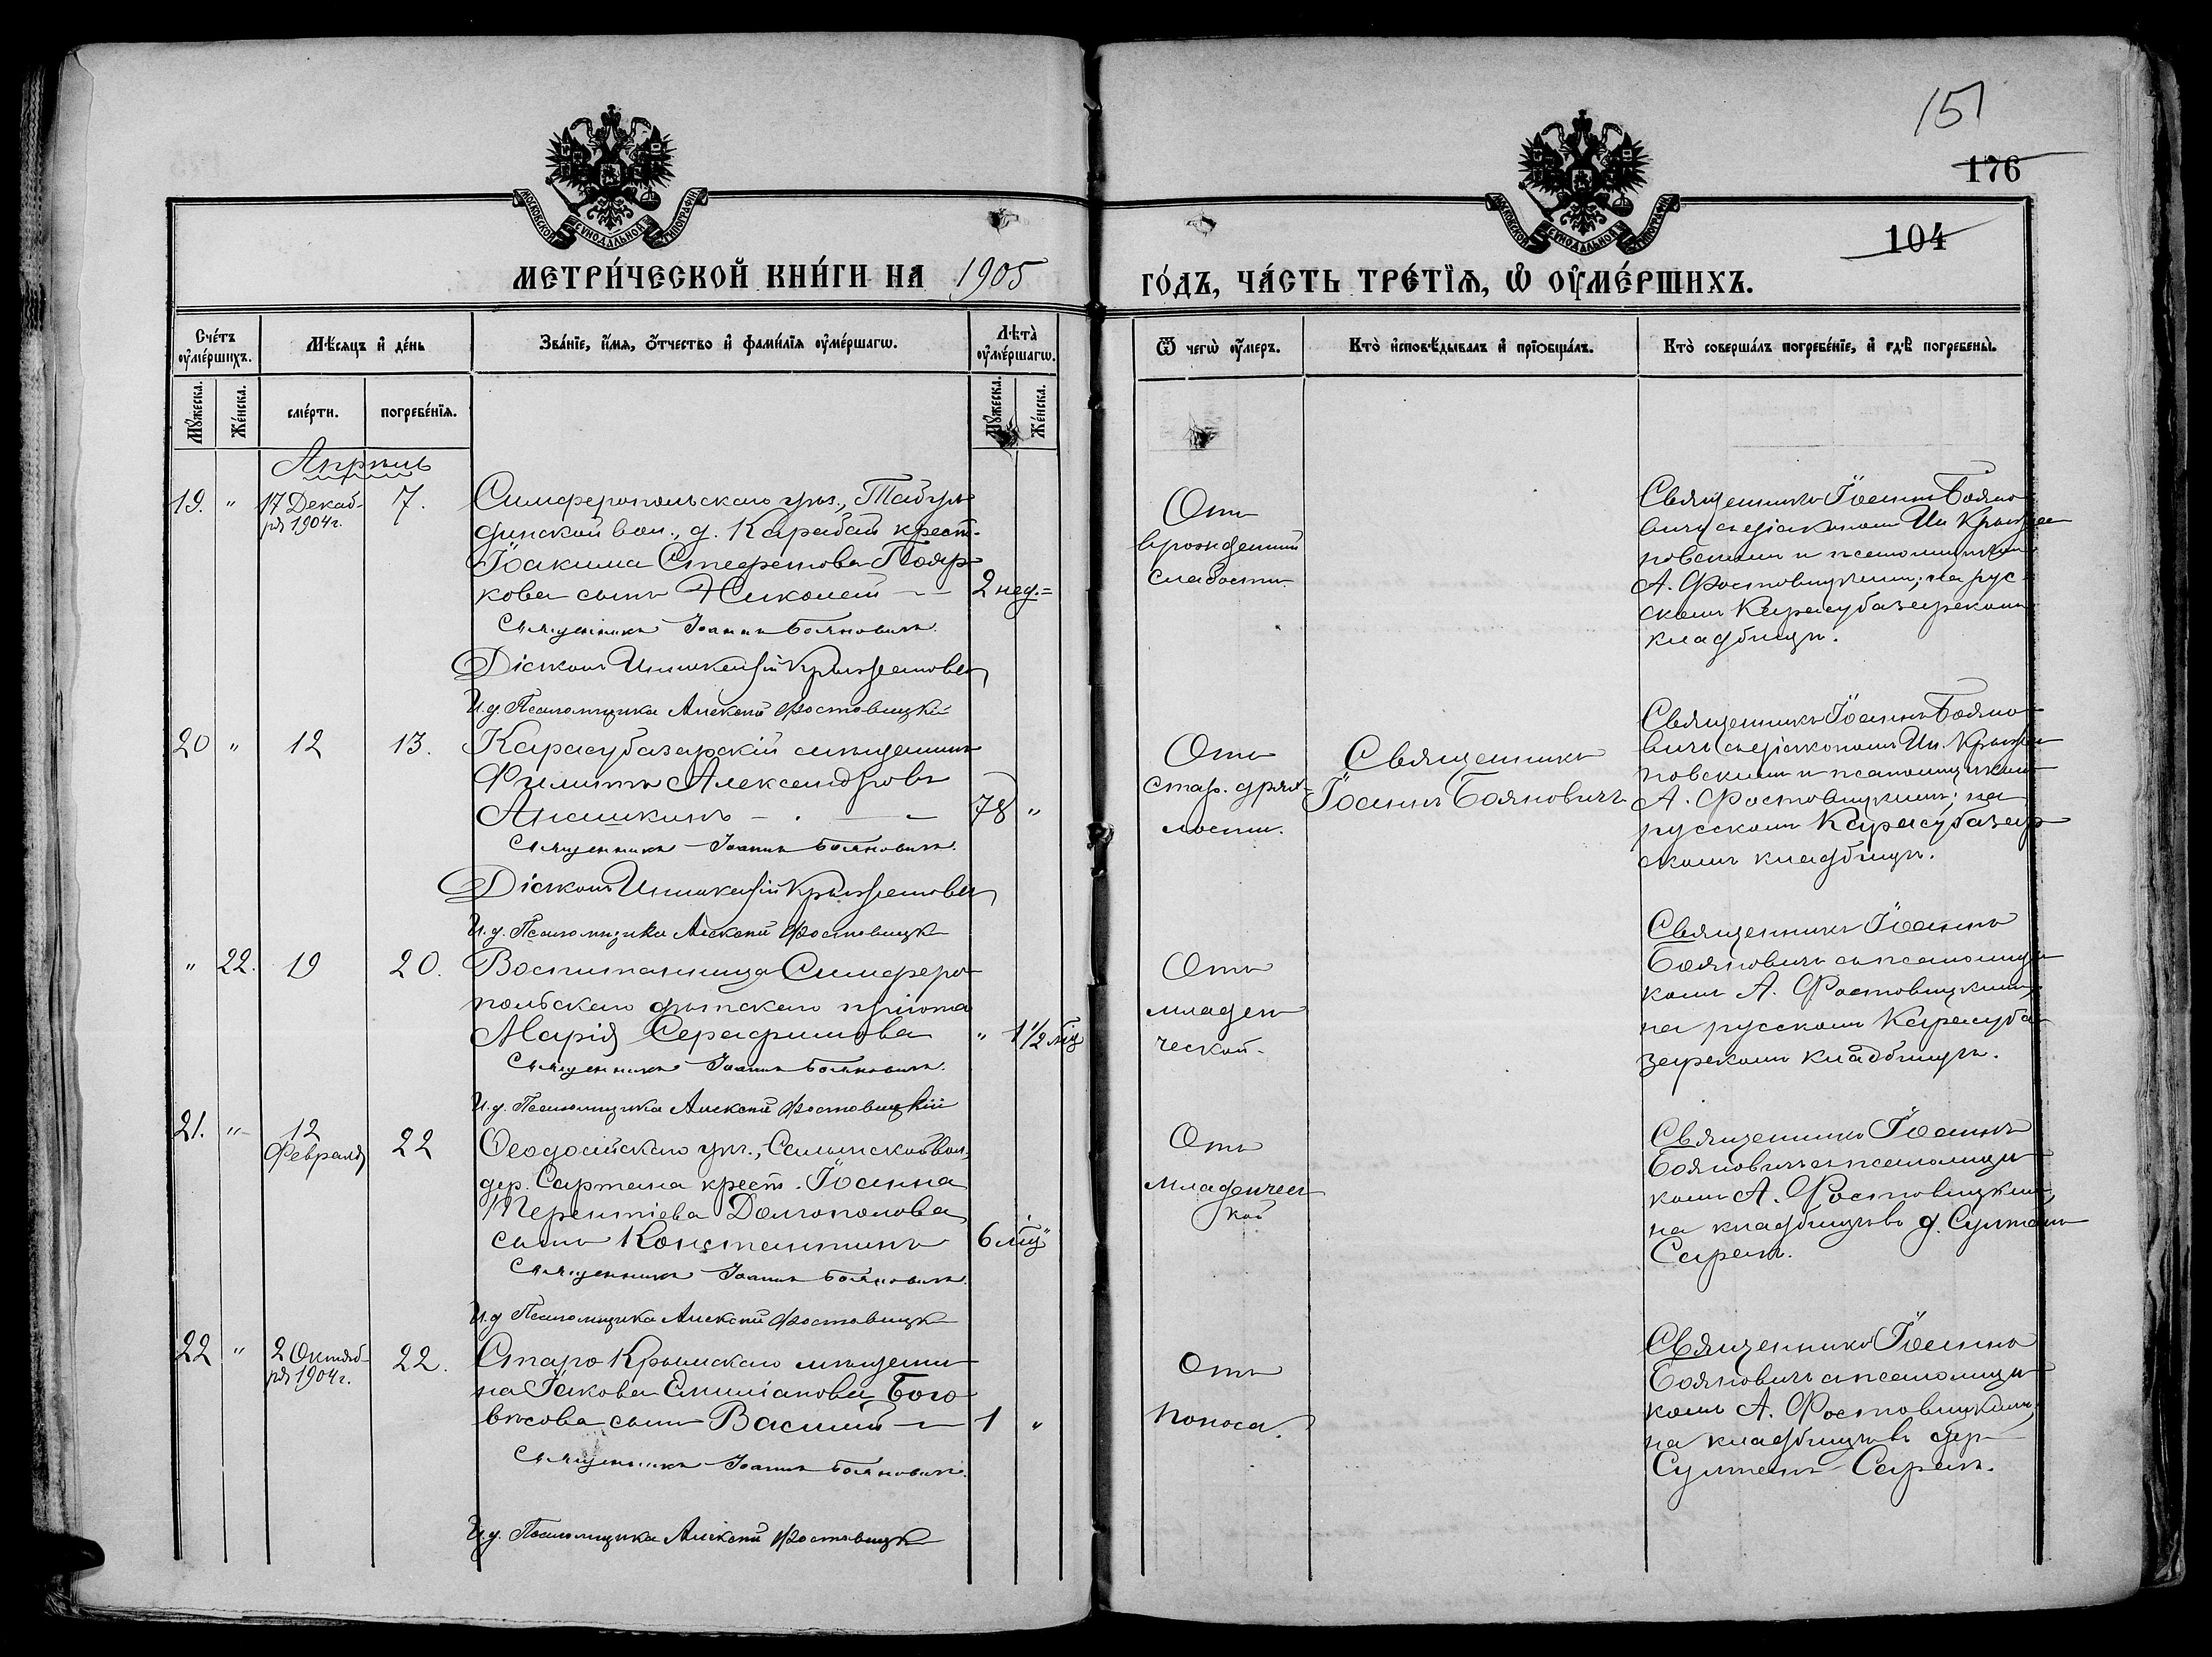 151
176
104
МОСКОВСКОЙ СѴНОДАЛЬНОЙ ТИПОГРАФІИ
МОСКОВСКОЙ СѴНОДАЛЬНОЙ ТИПОГРАФІИ
МЕТРИ́ЧЕСКОЙ КНИ́ГИ НА 1905
ГО́ДЪ, ЧА́СТЬ ТРЕ́ТЇѦ, Ѡ҆ ОУ҆МЕ́РШИХЪ.
Сче́тъ оу҆ме́ршихъ.
Мѣ́сяцъ и҆ де́нь
Зва́нїе, и҆́мѧ, ѻ҆́тчество и҆ фами́лїѧ оу҆ме́ршагѡ.
Лѣта̀ оу҆ме́ршагѡ.
Ѿ чегѡ̀ оу҆́меръ.
Кто̀ и҆сповѣ́дывалъ и҆ прїѡбща́лъ.
Кто̀ соверша́лъ погребе́нїе, и҆ гдѣ̀ погребены̀.
Мꙋ́жеска.
Же́нска.
сме́рти.
погребе́нїѧ.
Мꙋ́жеска.
Же́нска.
Апрѣль
19. " 17 Декаб-
ря 1904 г.
7.
Симферопольскаго уѣз., Табул-
динской вол., д. Карабай крест.
Іоакима Стефанова Пояр-
кова сынъ Николай —
2 нед. =
Священникъ Іоаннъ Бояновичъ.
Діаконъ Иннокентій Крыжановскій
И. д. Псаломщика Алексѣй Фостовицкій
Отъ
врожденной
слабости
Священникъ Іоаннъ Бояно-
вичъ съ діакономъ Ин. Крыжа-
новскимъ и псаломщикомъ
А. Фостовицкимъ; на рус-
скомъ Карасубазарскомъ
кладбищѣ.
20 " 12 13.
Карасубазарскій мѣщанинъ
Филиппъ Александровъ
Анашкинъ — . —
78 "
Священникъ Іоаннъ Бояновичъ.
Діаконъ Иннокентій Крыжановскій
И. д. Псаломщика Алексѣй Фостовицкій
Отъ
стар. дрях-
лости.
Священникъ
Іоаннъ Бояновичъ
Священникъ Іоаннъ Бояно-
вичъ съ діакономъ Ин. Крыжа-
новскимъ и псаломщикомъ
А. Фостовицкимъ; на
русскомъ Карасубазар-
скомъ кладбищѣ.
" 22. 19 20.
Воспитанница Симферо-
польскаго дѣтскаго пріюта
Марія Серафимова
" 1 1/2 мѣц
Священникъ Іоаннъ Бояновичъ.
И. д. Псаломщика Алексѣй Фостовицкій
Отъ
младен
ческой.
Священникъ Іоаннъ
Бояновичъ съ псаломщи-
комъ А. Фостовицкимъ,
на русскомъ Карасуба-
зарскомъ кладбищѣ.
21. " 12
Февраля
22
Ѳеодосійскаго уѣз., Салынской вол.,
дер. Сартана крест. Іоанна
Терентіева Долгополова
сынъ Константинъ
6 мѣц "
Священникъ Іоаннъ Бояновичъ.
И. д Псаломщика Алексѣй Фостовицкій
Отъ
младенчес
кой
Священникъ Іоаннъ
Бояновичъ съ псаломщи-
комъ А. Фостовицкимъ,
на кладбищѣ въ д. Султанъ
Сараѣ.
22 " 2 Октяб-
ря 1904 г.
22.
Старо Крымскаго мѣщани-
на Іакова Емиліанова Бого-
вѣсова сынъ Василій —
1 "
Священникъ Іоаннъ Бояновичъ.
И. д. Псаломщика Алексѣй Фостовицкій
Отъ
поноса.
Священникъ Іоаннъ
Бояновичъ съ псаломщи-
комъ А. Фостовицкимъ,
на кладбищѣ въ дер.
Султанъ Сараѣ.